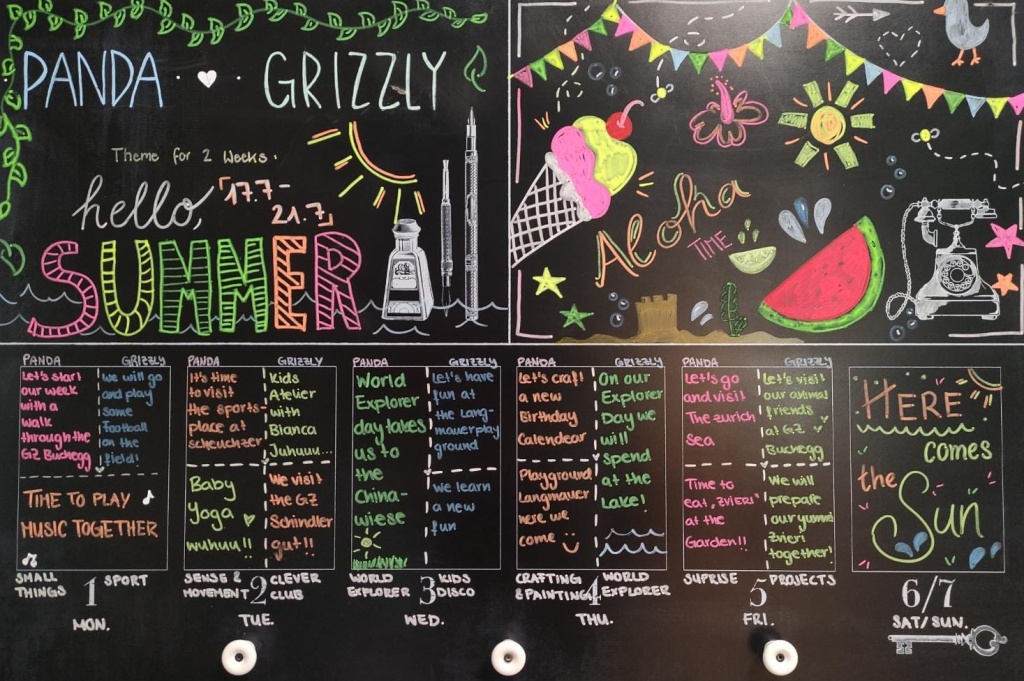 PANDA GRIZZLY
Theme for 2 Weeks:
hello,
17.7-
21.7
SUMMER
Aloha
TIME
PANDA GRIZZLY
Let's start
our week
with a
walk
through the
GZ Buchegg
we will go
and play
some
football
on the
field!
TIME TO PLAY
MUSIC TOGETHER
SMALL
THINGS
1
SPORT
MON.
PANDA GRIZZLY
It's time
to visit
the sports-
place at
scheuchzer
Kids
Atelier
with
Bianca
Juhuuu...
Baby
Yoga
wuhuu!!
We visit
the GZ
Schindler
gut!!
SENSE &
MOVEMENT
2
CLEVER
CLUB
TUE.
PANDA GRIZZLY
World
Explorer
day takes
us to
the
China-
wiese
Let's have
fun at
the Lang-
mauerplay
ground
we learn
a new
fun
WORLD
EXPLORER
3
KIDS
DISCO
WED.
PANDA GRIZZLY
Let's craf!
a new
Birthday
Calendear
Playground
Langmauer
here we
come
On our
Explorer
Day we
will
spend
at the
Lake!
CRAFTING
& PAINTING
4
WORLD
EXPLORER
THU.
PANDA GRIZZLY
Let's go
and visit
The zurich
sea
Let's visit
our animal
friends
at GZ
Buchegg
Time to
eat „zvieri"
at the
Garden!!
We will
prepare
our yummi
zvieri
together!
SUPRISE
5
PROJECTS
FRI.
HERE
comes
the
Sun
6/7
SAT/SUN.